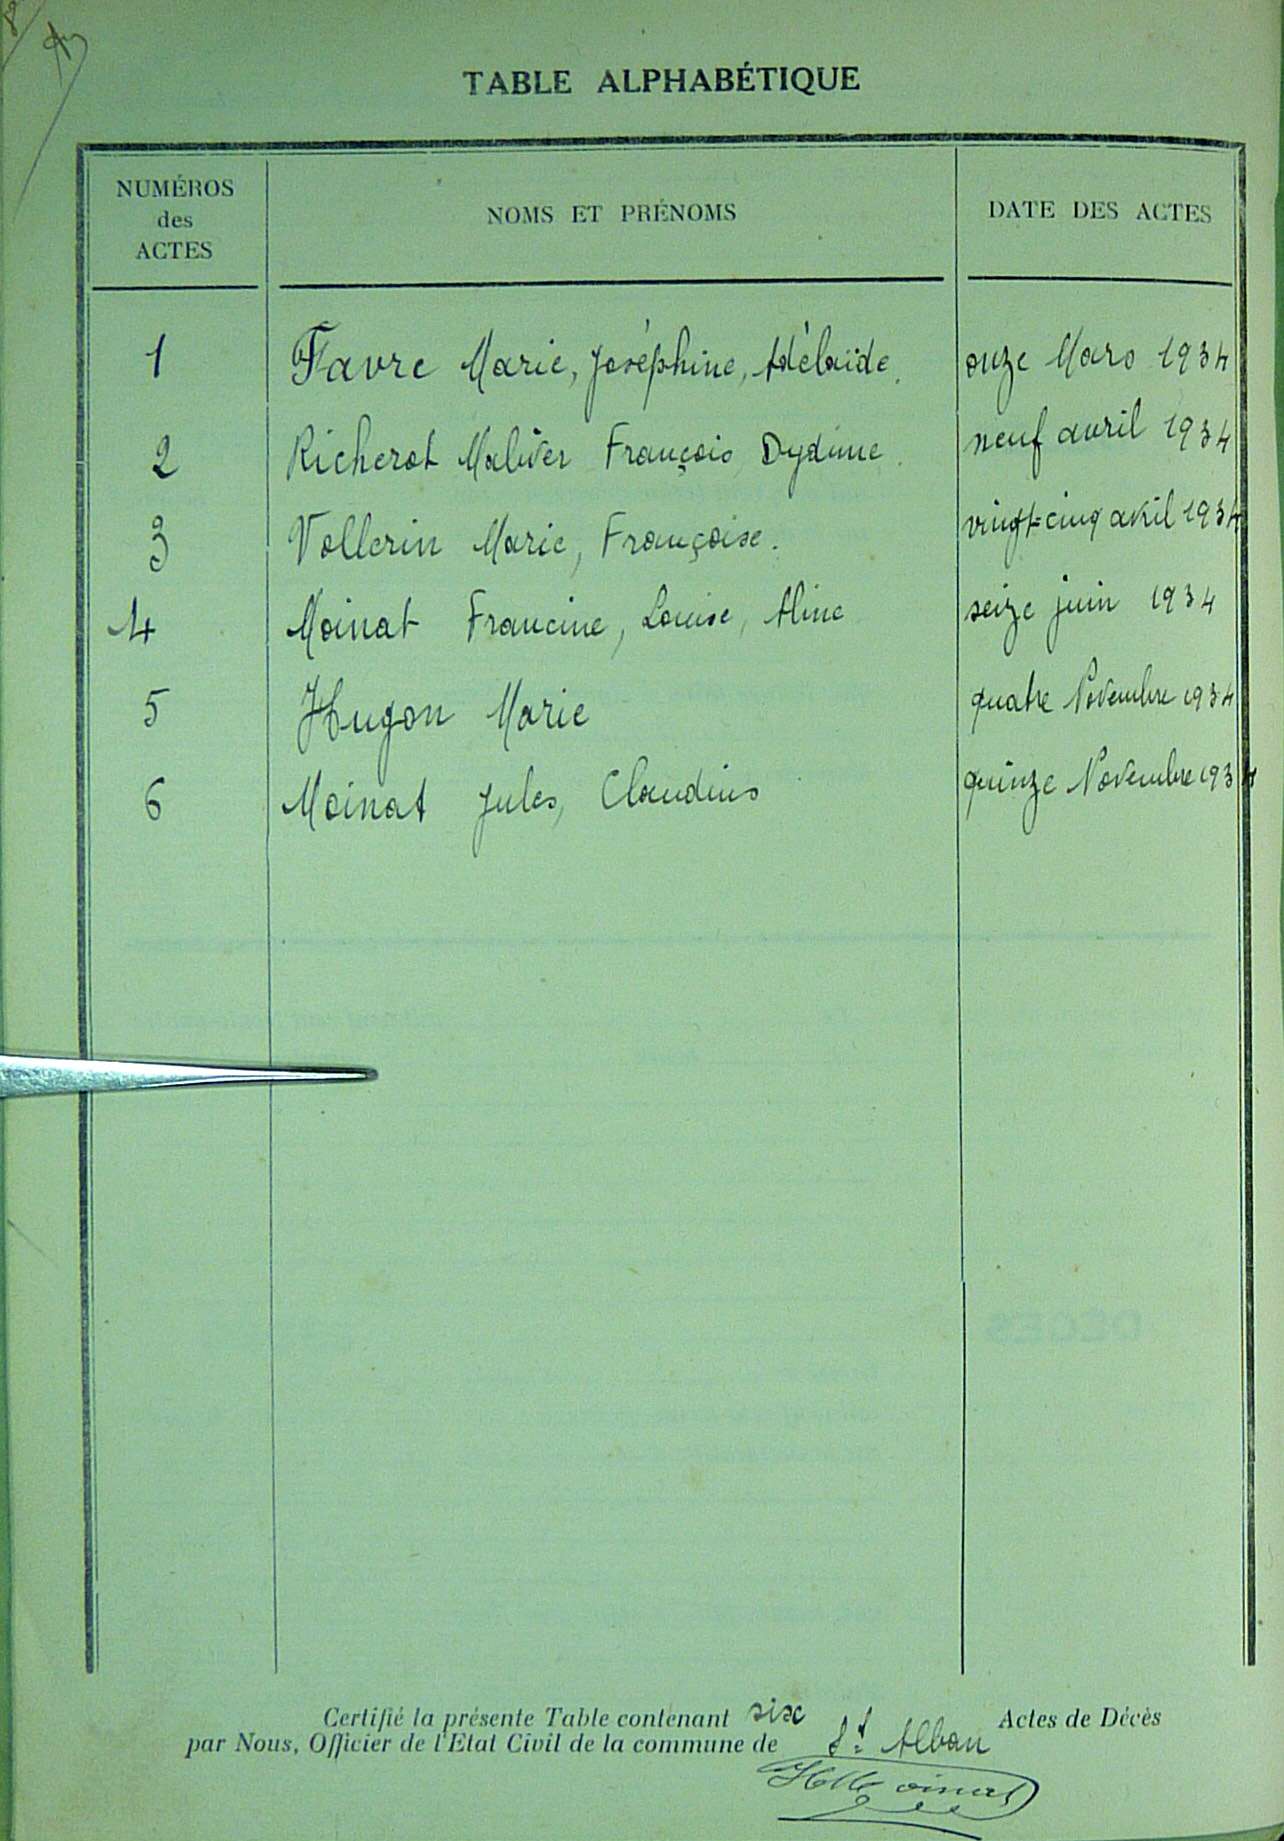 TABLE ALPHABÉTIQUE
NUMÉROS des ACTES NOMS ET PRÉNOMS DATE DES ACTES
1 Favre Marie, Joséphine, Adélaïde. onze Mars 1934
2 Richerot Maliver François Dydime. neuf avril 1934
3 Vollerin Marie, Françoise. vingt-cinq avril 1934
4 Moinat Francine, Louise, Aline seize juin 1934
5 Hugon Marie quatre Novembre 1934
6 Moinat Jules, Claudius quinze Novembre 1934
Certifié la présente Table contenant six Actes de Décès
par Nous, Officier de l'État Civil de la commune de St Alban
Moinat